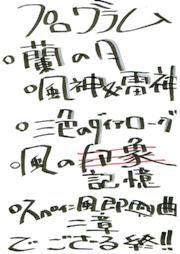 プログラム
○蘭の月
○風神&雷神
○三色のダイアローグ
○風の印象
記憶
○スペイン風即興曲
二章
でござる終!!